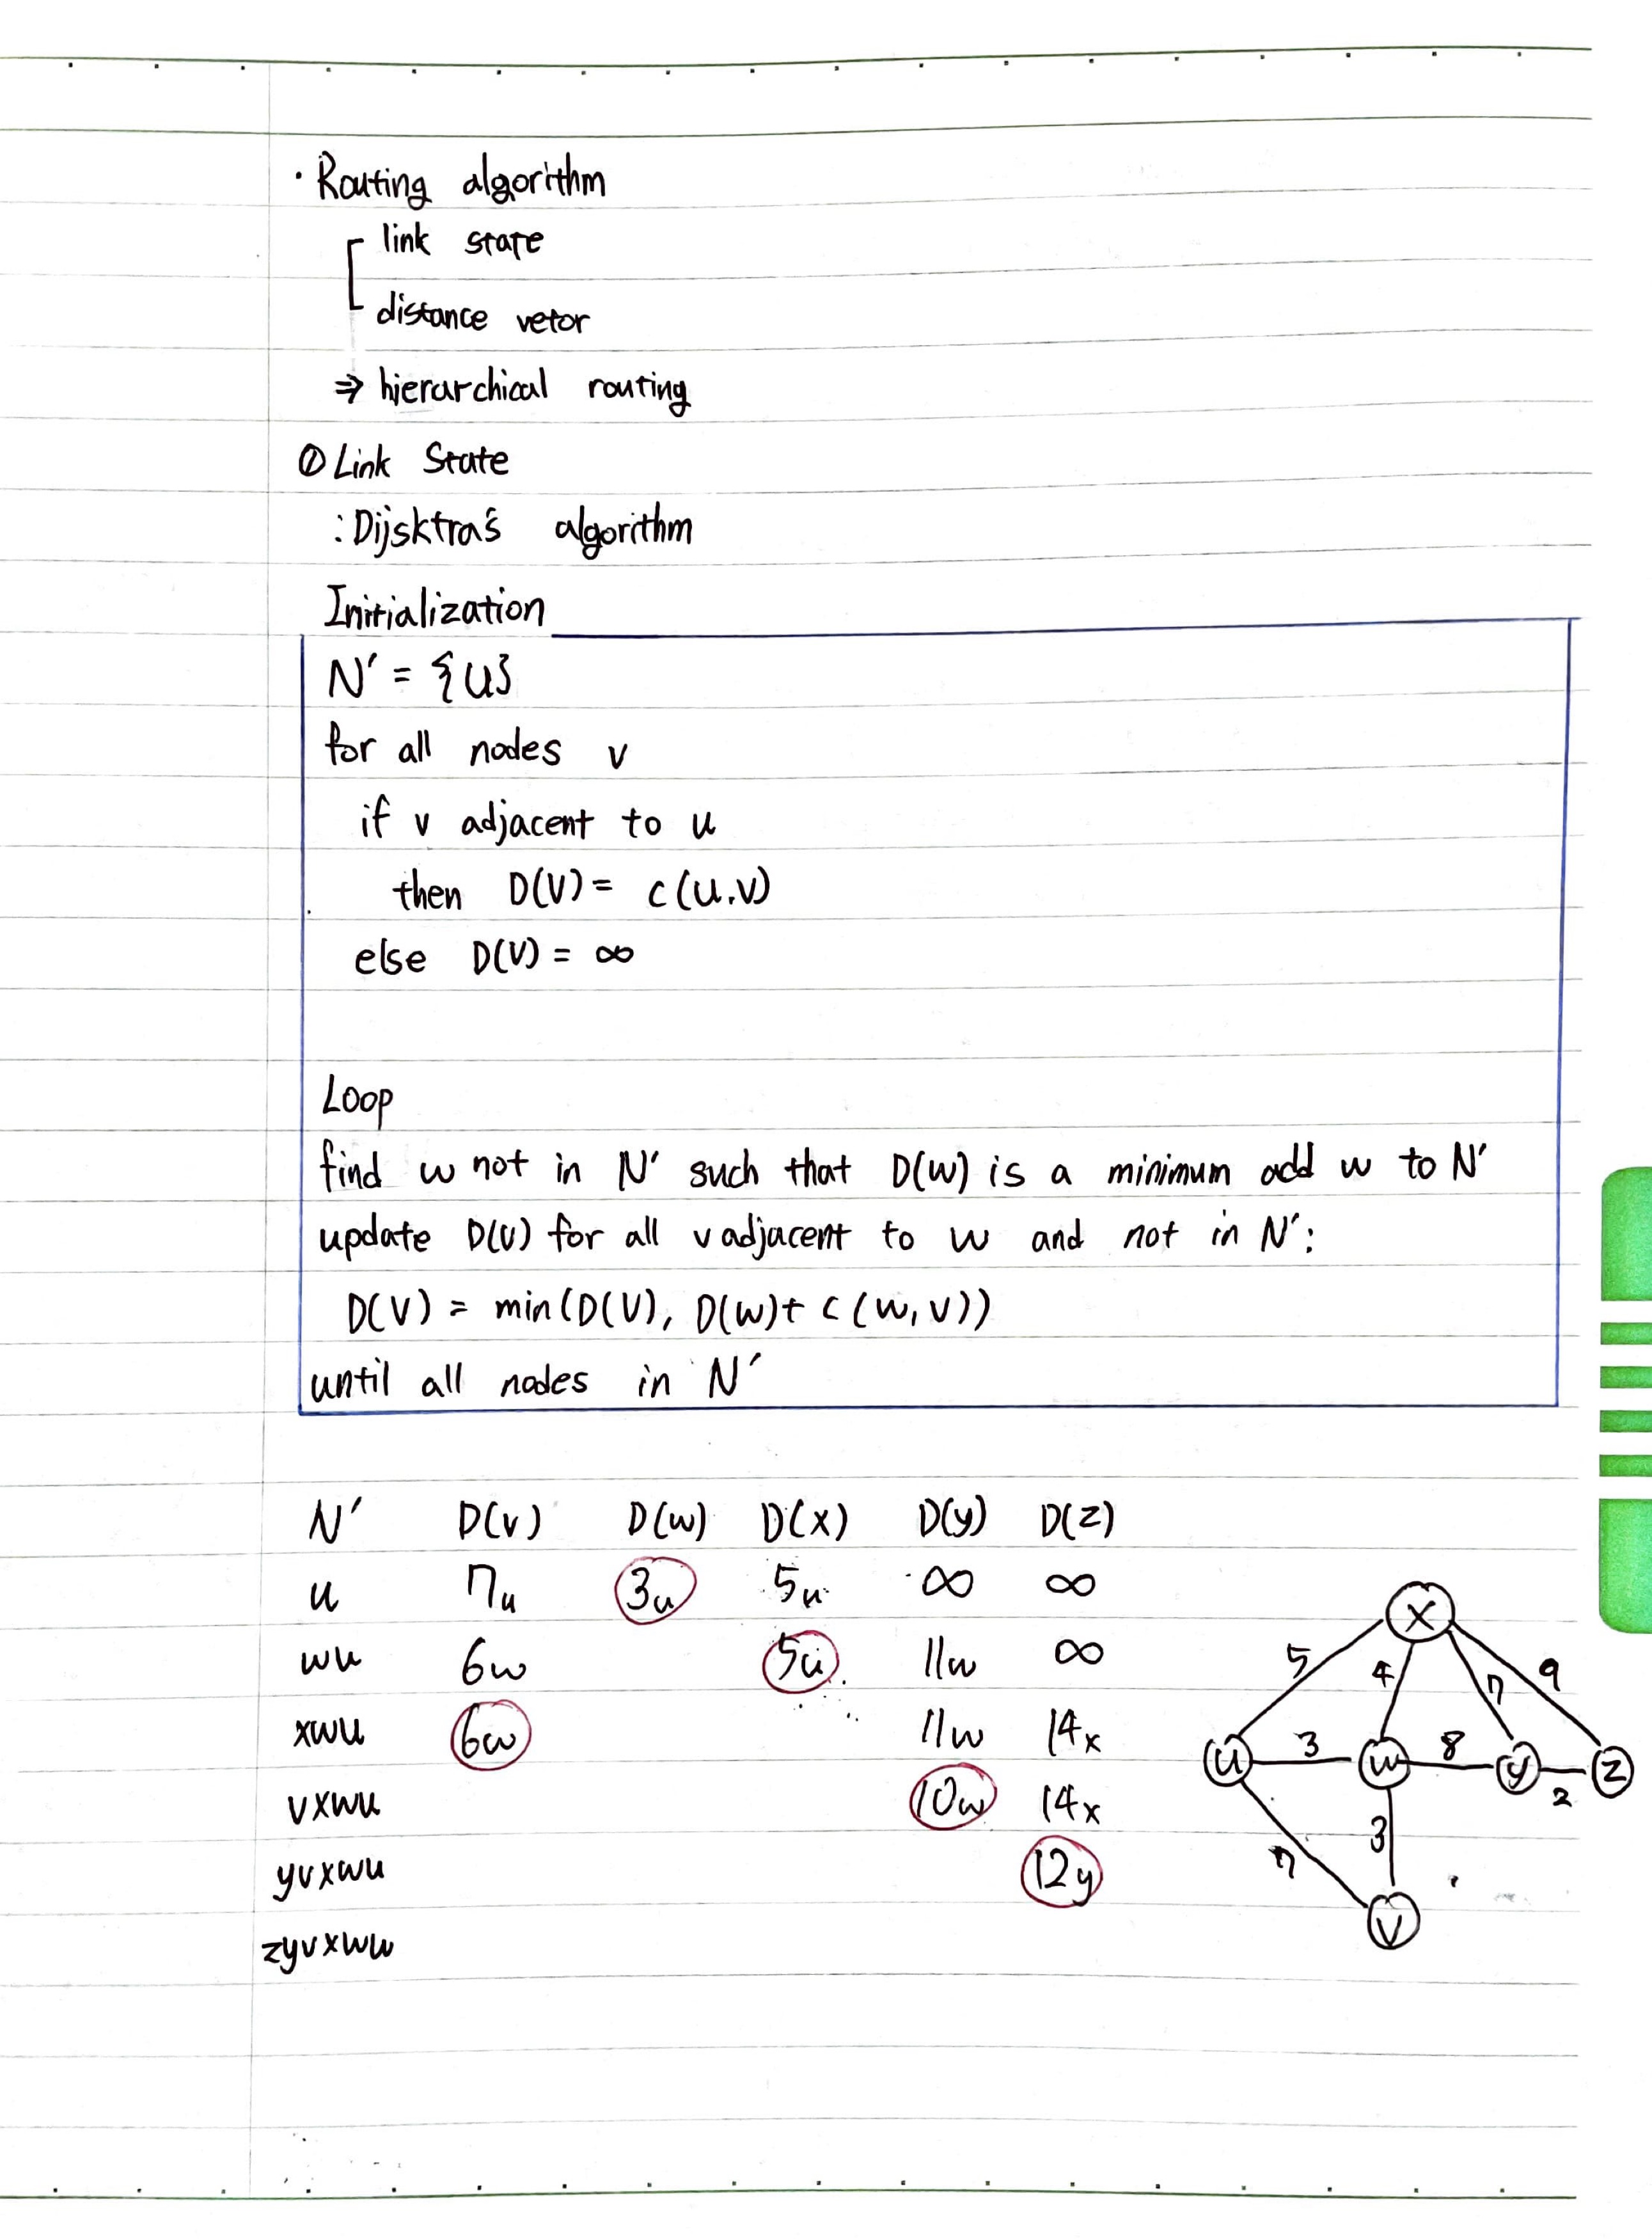 · Routing algorithm
link state
distance vetor
⇒ hierarchical routing
① Link State
: Dijsktra's algorithm
Initialization
N' = {u}
for all nodes v
if v adjacent to u
then D(v) = c(u.v)
else D(v) = ∞
Loop
find w not in N' such that D(w) is a minimum add w to N'
update D(v) for all v adjacent to w and not in N':
D(v) = min(D(v), D(w)+ c(w,v))
until all nodes in N'
N' D(v) D(w) D(x) D(y) D(z)
u 7u 3u 5u ∞ ∞
wu 6w 5u 11w ∞
xwu 6w 11w 14x
vxwu 10w 14x
yvxwu 12y
zyvxwu
x
5 4 7 9
u 3 w 8 y 2 z
7 3
v